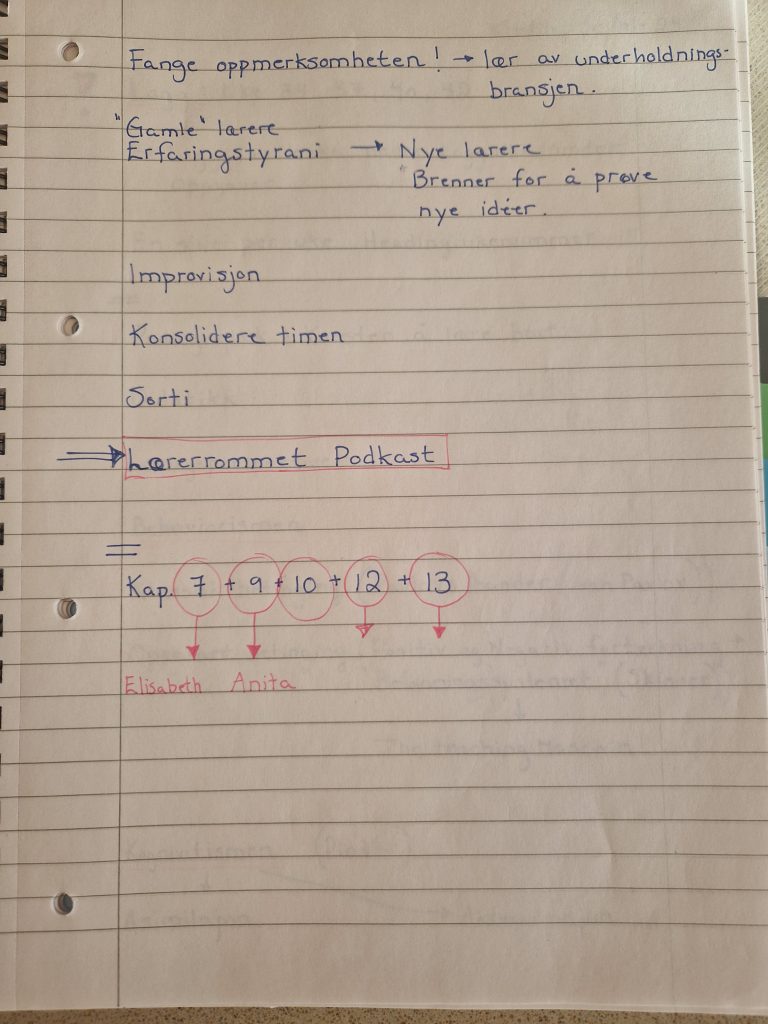 Fange oppmerksomheten! → lær av underholdnings-
bransjen.
"Gamle" lærere
Erfaringstyrani → Nye lærere
Brenner for å prøve
nye idéer.
Improvisjon
Konsolidere timen
Sorti
Lærerrommet Podkast
=
Kap. 7 + 9 + 10 + 12 + 13
Elisabeth Anita